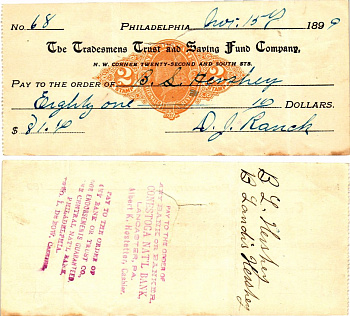 No. 68 Philadelphia, Nov. 15th 1899
The Tradesmens Trust and Saving Fund Company,
N. W. CORNER TWENTY-SECOND AND SOUTH STS.
PAY TO THE ORDER OF B. L. Hershey
Eighty one 40 DOLLARS.
$ 81.40 D. J. Ranck
2 2
PAY TO THE ORDER OF
ANY BANK OR BANKER,
CONESTOGA NAT'L BANK,
LANCASTER, PA.
Albert K. Hostetter, Cashier.
PAY TO THE ORDER OF
ANY BANK OR TRUST CO
ENDORSEMENTS GUARANTEED
CENTRAL NAT'L BANK
PHILADELPHIA
B L Hershey
B Landis Hershey